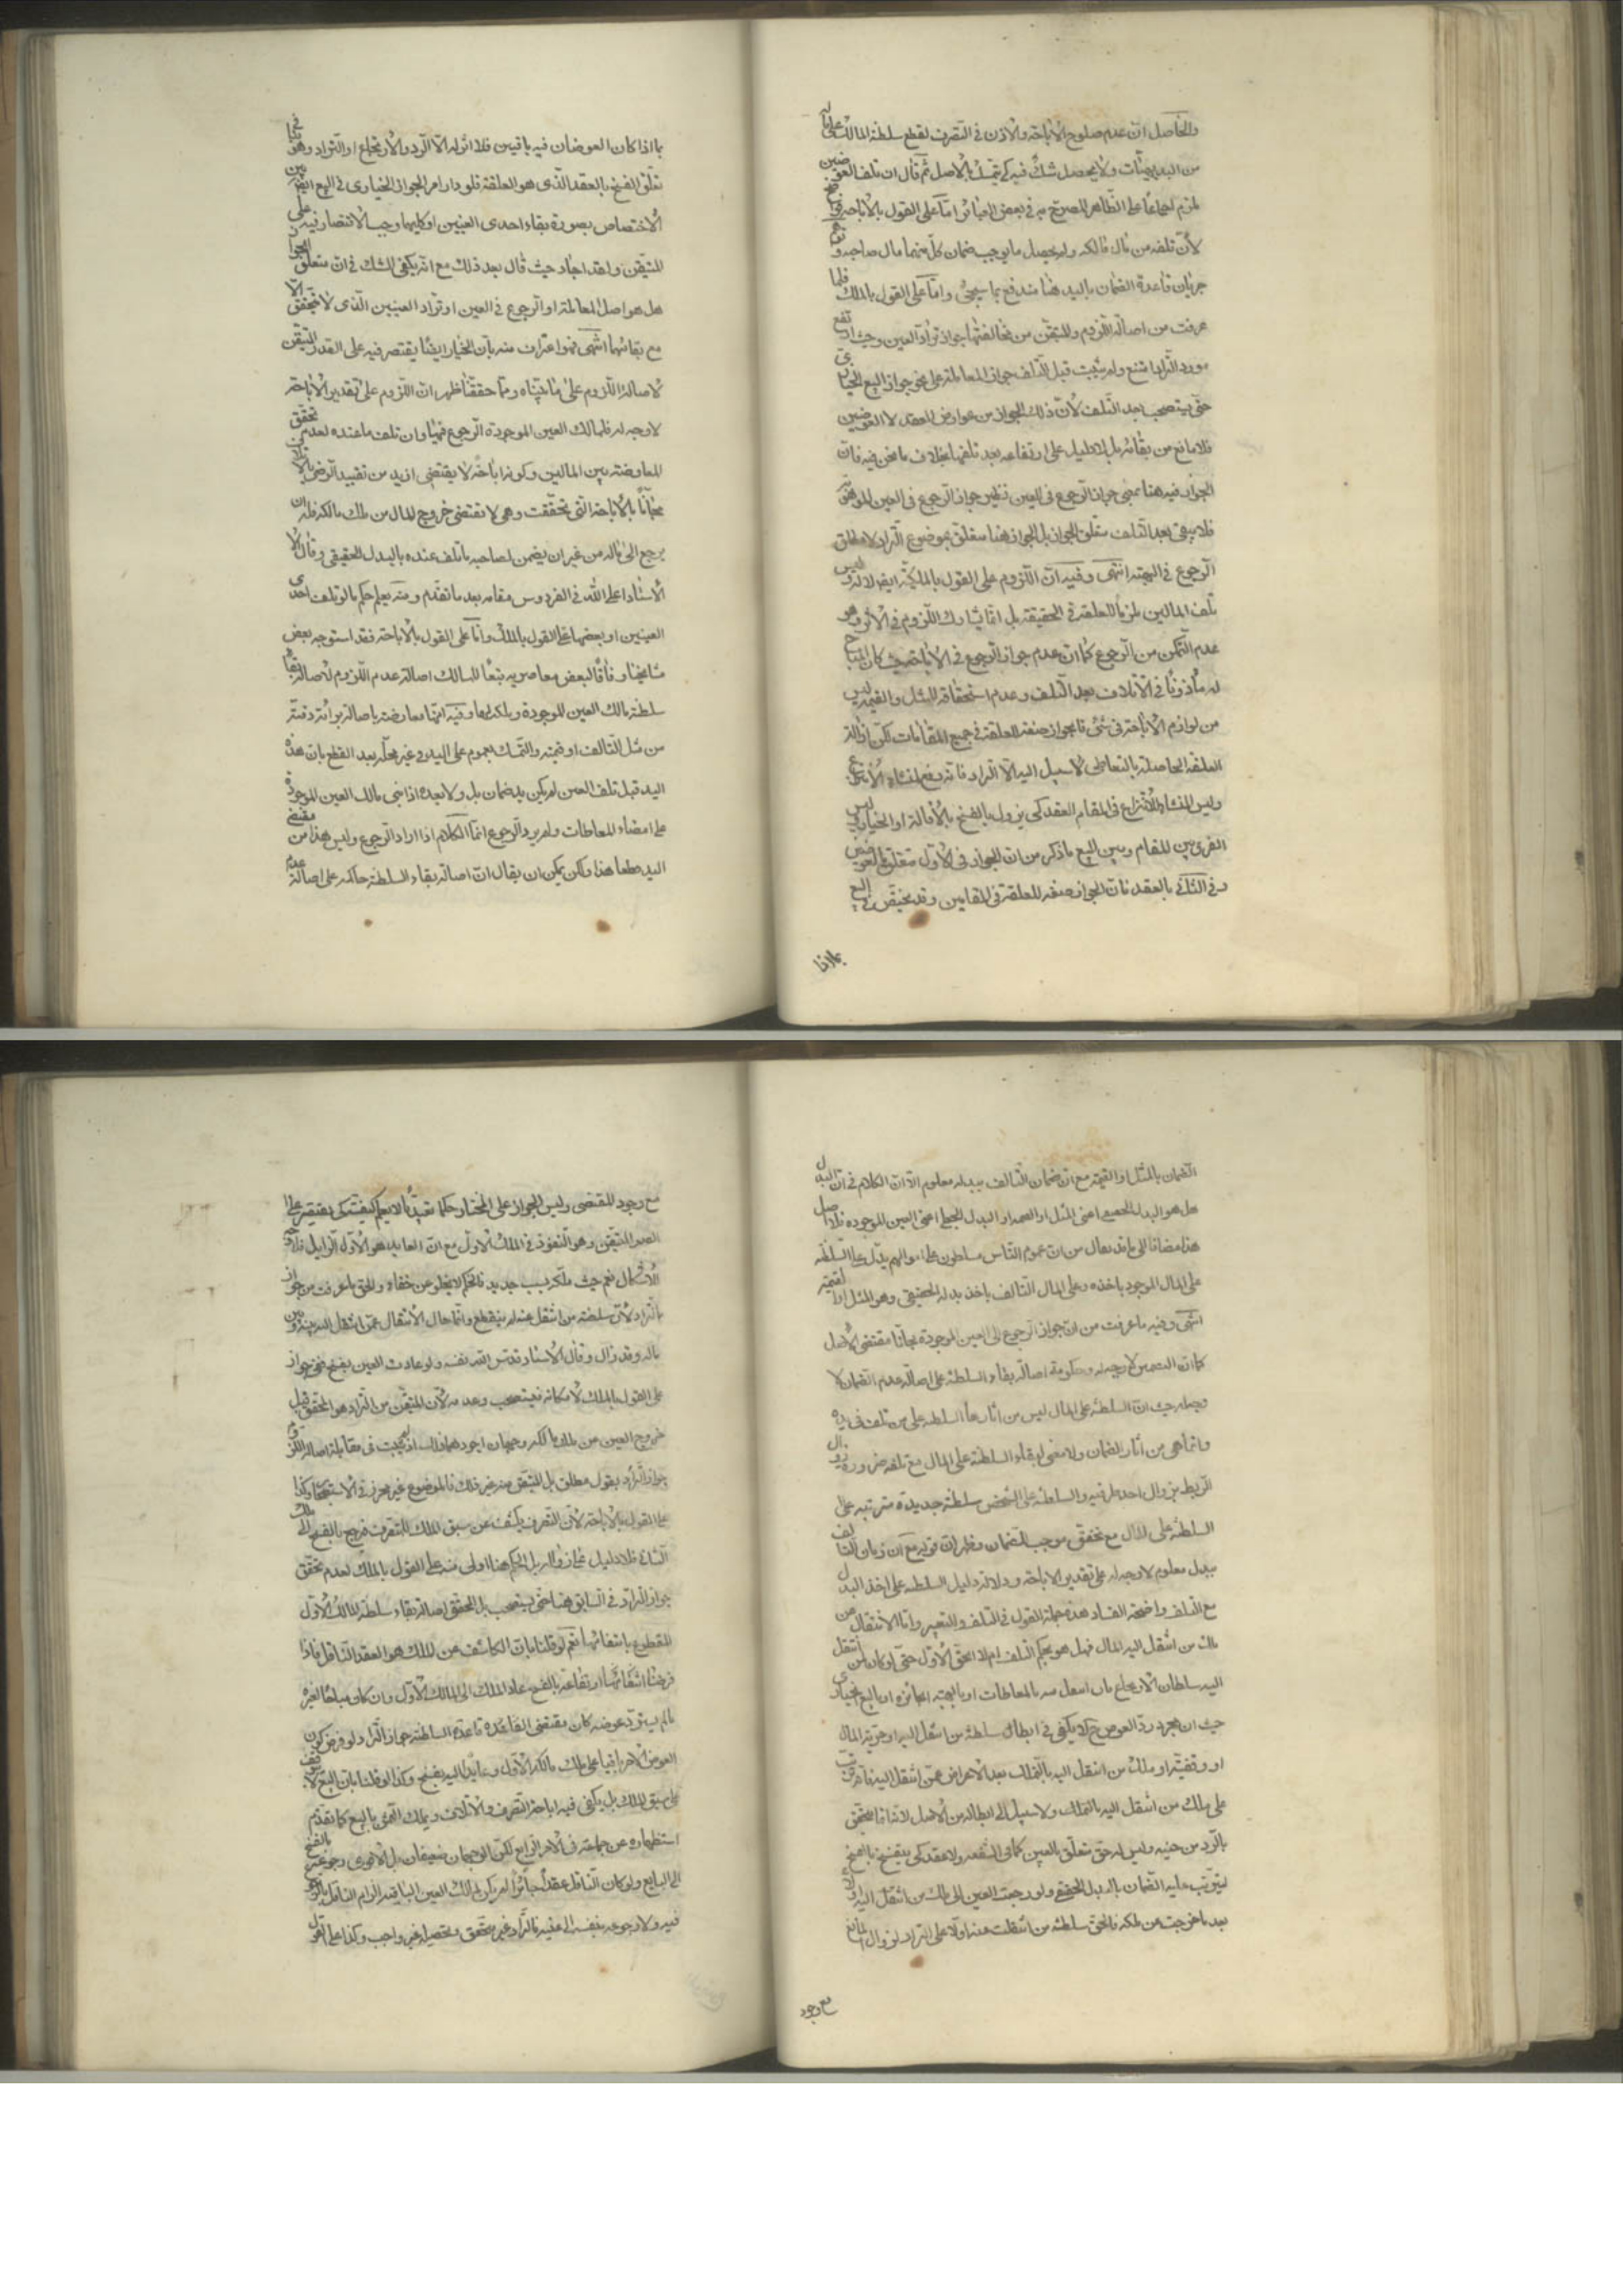 والحاصل ان عدم صلوح الاباحة والاذن في التصرف لقطع سلطنة المالك على ماله
من البديهيات ولا يحصل شك فيه كي يتمسك بالاصل ثم قال ان تلف العوضين
ملزم اجماعا على الظاهر المصرح به في بعض العبائر اما على القول بالاباحة فواضح
لان تلفه من مال مالكه ولم يحصل ما يوجب ضمان كل منهما مال صاحبه وتوهم
جريان قاعدة الضمان باليد هنا مندفع بما سيجئ واما على القول بالملك فلما
عرفت من اصالة اللزوم والمتيقن من مخالفتها جواز تراد العين وحيث ارتفع
مورد التراد امتنع ولم يثبت قبل التلف جواز المعاملة على نحو جواز البيع الخياري
حتى يستصحب بعد التلف لان ذلك الجواز من عوارض العقد لا العوضين
فلا مانع من بقائه بل لا دليل على ارتفاعه بعد تلفهما بخلاف ما نحن فيه فان
الجواز فيه هنا بمعنى جواز الرجوع في العين نظير جواز الرجوع في العين الموهوبة
فلا يبقى بعد التلف متعلق الجواز بل الجواز هنا متعلق بموضوع التراد لا مطلق
الرجوع في الهبة انتهى وفيه ان اللزوم على القول بالملكية ايضا لا لذ وليس
تلف المالين ملزما للعلقة في الحقيقة بل انما يشارك اللزوم في الاثر وهو
عدم التمكن من الرجوع كما ان عدم جواز الرجوع في الاباحة حيث كان المباح
له مأذونا في الاتلاف بعد التلف وعدم استحقاقه المثل والقيمة ليس
من لوازم الاباحة في شئ فالجواز صفة العلقة في جميع المقامات لكن ازالة
العلقة الحاصلة بالتعاطي لا سبيل اليه الا التراد فانه رفع لمنشاء الانتزاع
وليس المنشاء للانتزاع في المقام العقد كي يزول بالفسخ بالاقالة او الخيار وليس
الفرق بين المقام وبين البيع ما ذكر من ان الجواز في الاول متعلق بالعوضين
وفي الثاني بالعقد فان الجواز صفة للعلقة في المقامين وقد يختص في البيع
بما اذا
بما اذا كان العوضان فيه باقيين فلا اثر له الا الرد والارتجاع او التراد وهو
تعلق الفسخ بالعقد الذي هو العلقة فلو دار امر الجواز الخياري في البيع ايضا بين
الاختصاص بصورة بقاء احدى العينين او كليهما وجب الاقتصار فيه على
المتيقن ولقد اجاد حيث قال بعد ذلك مع انه يكفي الشك في ان متعلق الجواز
هل هو اصل المعاملة او الرجوع في العين او تراد العينين الذي لا تحقق الا
مع بقائهما انتهى فهو اعتراف منه بان الخيار ايضا يقتصر فيه على القدر المتيقن
لاصالة اللزوم على ما بيناه ومما حققنا ظهر ان اللزوم على تقدير الاباحة
لا وجه له فلمالك العين الموجودة الرجوع فيها وان تلف ما عنده لعدم تحقق
المعاوضة بين المالين وكونها اباحة لا يقتضي ازيد من تقييد الرضى
مجانا بالاباحة التي تحققت وهي لا تقتضي خروج المال من ملك مالكه فله ان
يرجع الى ماله من غير ان يضمن لصاحبه ما تلف عنده بالبدل الحقيقي وقال
الاستاد اعلى الله في الفردوس مقامه بعد ما تقدم ومنه يعلم حكم ما لو تلف احدى
العينين او بعضها على القول بالملك واما على القول بالاباحة فقد استوجه بعض
مشايخنا وفاقا لبعض معاصريه تبعا للمسالك اصالة عدم اللزوم لاصالة بقاء
سلطنة مالك العين الموجودة وملكه لها وفيه انها معارضة باصالة برائة ذمته
من مثل التالف او قيمته والتمسك بعموم على اليد في غير محله بعد القطع بان هذه
اليد قبل تلف العين لم يكن يد ضمان بل ولا بعده اذا بنى مالك العين الموجودة
على امضاء المعاطات ولم يرد الرجوع انما الكلام اذا اراد الرجوع وليس هذا من مقتضى
اليد قطعا هذا ولكن يمكن ان يقال ان اصالة بقاء السلطنة حاكمة على اصالة عدم
الضمان بالمثل او القيمة مع ان ضمان التالف ببدله معلوم الا ان الكلام في ان البدل
هل هو البدل الحقيقي اعني المثل او القيمة او البدل الجعلي اعني العين الموجودة فلا اصل
هذا مضافا الى ما قد يقال من ان عموم الناس مسلطون على اموالهم يدل على السلطنة
على المال الموجود باخذه وعلى المال التالف باخذ بدله الحقيقي وهو المثل او القيمة
انتهى وفيه ما عرفت من ان جواز الرجوع الى العين الموجودة مجانا مقتضى الاصل
كما ان التضمين لا وجه له وحكومة اصالة بقاء السلطنة على اصالة عدم الضمان لا
وجه له حيث ان السلطنة على المال ليس من اثارها السلطنة على من تلف في يده
وانما هي من اثار الضمان ولا معنى لبقاء السلطنة على المال مع تلفه ضرورة زوال
الربط بزوال احد طرفيه والسلطنة على الشخص سلطنة جديدة مترتبة على
السلطنة على المال مع تحقق موجب الضمان وظهر ان قوله مع ان ضمان التالف
ببدل معلوم لا وجه له على تقدير الاباحة ودلالة دليل السلطنة على اخذ البدل
مع التلف واضحة الفساد هذه جملة القول في التلف والتعيير واما الانتقال عن
ملك من انتقل اليه المال فهل هو بحكم التلف ام لا الحق الاول حتى لو كان لمن انتقل
اليه سلطان الارتجاع بان انتقل منه بالمعاطات او بالهبة الجائزة او بالبيع الخياري
حيث ان مجرد رد العوض ح لا يكفي في ابطال سلطنة من انتقل اليه او حرية المال
او وقفيته او ملك من انتقل اليه بالتملك بعد الاعراض عمن انتقل اليه
على ملك من انتقل اليه بالتملك ولا سبيل الى ابطاله من الاصل
بالرد من حينه وليس له حق متعلق بالعين كما في الشفعة ولا عقد كي ينفسخ بالفسخ
ليترتب عليه الضمان بالبدل الحقيقي ولو رجعت العين الى ملك من انتقل اليه اولا
بعد ما خرجت عن ملكه فالحق سلطنة من انتقلت عنه اولا على التراد لزوال المانع
مع وجود
مع وجود المقتضي وليس الجواز على المختار حكما تعبديا لا يعلم كيفيته كي يقتصر على
القدر المتيقن وهو النفوذ في الملك الاول مع ان العايد هو الاول الزايل فلا وجه
للاشكال نعم حيث ملكه بسبب جديد فالحكم لا يخلو عن خفاء والحق ما عرفت من جواز
التراد لان سلطنة من انتقل عنه لم ينقطع وانما حال الانتقال عمن انتقل اليه بينه وبين
ماله وقد زال وقال الاستاد قدس الله نفسه ولو عادت العين بفسخ ففي جواز
على القول بالملك لامكانه فيستصحب وعدمه لان المتيقن من التراد هو المحقق قبل
خروج العين عن ملك مالكه وجهان اجودهما ذلك اذ لم يثبت في مقابلة اصالة اللزوم
جواز التراد بقول مطلق بل المتيقن منه غير ذلك فالموضوع غير محرز في الاستصحاب وكذا
على القول بالاباحة لان التصرف يكشف عن سبق الملك للمتصرف فيرجع بالفسخ الى ملك
الثاني فلا دليل على زواله بل الحكم هنا اولى منه على القول بالملك لعدم تحقق
جواز التراد في السابق هنا حتى يستصحب بل المحقق اصالة بقاء سلطنة المالك الاول
المقطوع بانتفائها نعم لو قلنا بان الكاشف عن الملك هو العقد الناقل فاذا
فرضنا انتفائه وارتفاعه بالفسخ عاد الملك الى المالك الاول وان كان مباحا لغيره
ما لم يسترد عوضه كان مقتضى القاعدة قاعدة السلطنة جواز التراد لو فرض كون
العوض الاخر باقيا على ملك مالكه الاول وعايدا اليه بفسخ وكذا لو قلنا بان البيع لا يتوقف
على سبق الملك بل يكفي فيه اباحة التصرف والاتلاف ويملك الثمن بالبيع كما تقدم
استظهاره عن جماعة في الامر الرابع لكن الوجهان ضعيفان بل الاقوى رجوعه بالفسخ
الى البايع ولو كان الناقل عقدا جائزا لم يكن لمالك العين الباقية الزام الناقل بالرجوع
فيه ولا رجوعه بنفسه الى عينه فالتراد غير متحقق وتحصيله غير واجب وكذا على القول